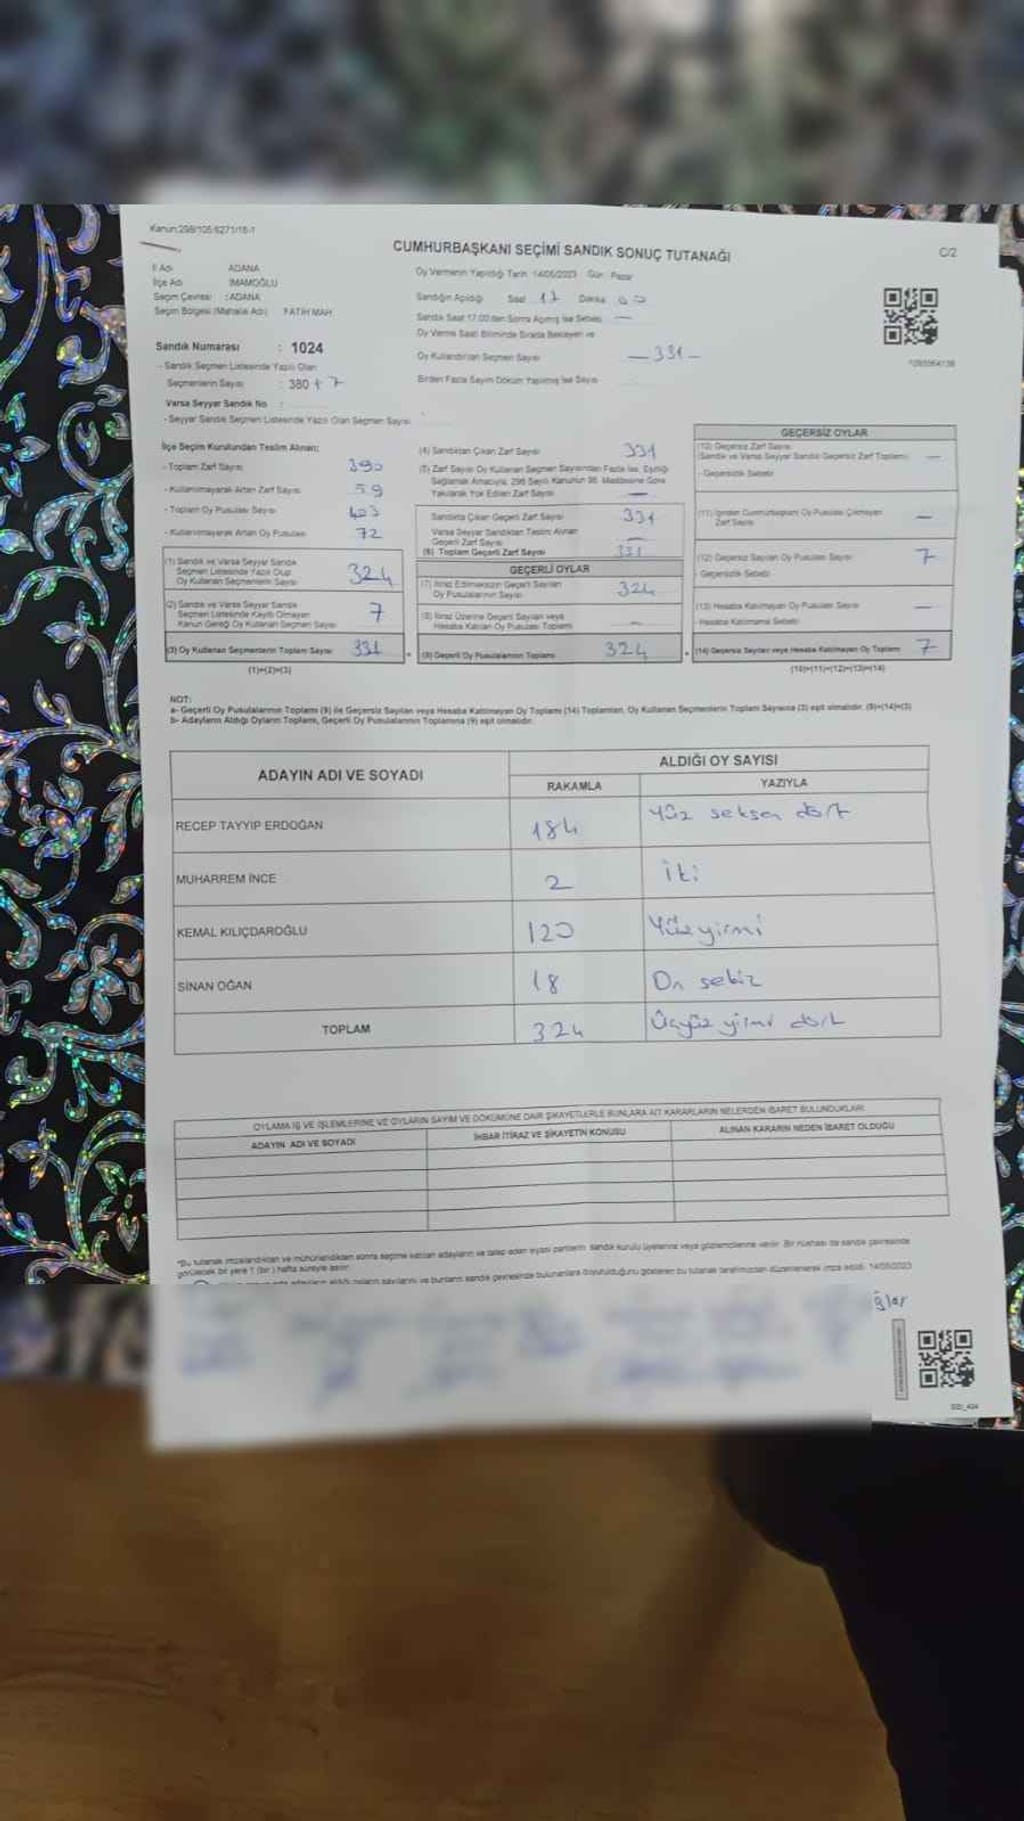 Kanun:298/105 6271/16-1
CUMHURBAŞKANI SEÇİMİ SANDIK SONUÇ TUTANAĞI
C/2
İl Adı ADANA
İlçe Adı İMAMOĞLU
Seçim Çevresi : ADANA
Seçim Bölgesi (Mahalle Adı) FATİH MAH.
Sandık Numarası : 1024
- Sandık Seçmen Listesinde Yazılı Olan
Seçmenlerin Sayısı : 380 + 7
Varsa Seyyar Sandık No :
- Seyyar Sandık Seçmen Listesinde Yazılı Olan Seçmen Sayısı
Oy Vermenin Yapıldığı Tarih 14/05/2023 Gün Pazar
Sandığın Açıldığı Saat 17 Dakika 00
Sandık Saat 17.00'den Sonra Açılmış İse Sebebi —
Oy Verme Saati Bitiminde Sırada Bekleyen ve
Oy Kullandırılan Seçmen Sayısı — 331 —
Birden Fazla Sayım Döküm Yapılmış İse Sayısı
İlçe Seçim Kurulundan Teslim Alınan;
- Toplam Zarf Sayısı 390
- Kullanılmayarak Artan Zarf Sayısı 59
- Toplam Oy Pusulası Sayısı 403
- Kullanılmayarak Artan Oy Pusulası 72
(1) Sandık ve Varsa Seyyar Sandık
Seçmen Listesinde Yazılı Olup
Oy Kullanan Seçmenlerin Sayısı 324
(2) Sandık ve Varsa Seyyar Sandık
Seçmen Listesinde Kayıtlı Olmayan
Kanun Gereği Oy Kullanan Seçmen Sayısı 7
(3) Oy Kullanan Seçmenlerin Toplam Sayısı 331
(1)+(2)=(3)
(4) Sandıktan Çıkan Zarf Sayısı 331
(5) Zarf Sayısı Oy Kullanan Seçmen Sayısından Fazla İse, Eşitliği
Sağlamak Amacıyla, 298 Sayılı Kanunun 98. Maddesine Göre
Yakılarak Yok Edilen Zarf Sayısı —
Sandıkta Çıkan Geçerli Zarf Sayısı 331
Varsa Seyyar Sandıktan Teslim Alınan
Geçerli Zarf Sayısı —
(6) Toplam Geçerli Zarf Sayısı 331
GEÇERLİ OYLAR
(7) İtiraz Edilmeksizin Geçerli Sayılan
Oy Pusulalarının Sayısı 324
(8) İtiraz Üzerine Geçerli Sayılan veya
Hesaba Katılan Oy Pusulası Toplamı —
(9) Geçerli Oy Pusulalarının Toplamı 324
GEÇERSİZ OYLAR
(10) Geçersiz Zarf Sayısı
(Sandık ve Varsa Seyyar Sandık Geçersiz Zarf Toplamı) —
- Geçersizlik Sebebi
(11) İçinden Cumhurbaşkanı Oy Pusulası Çıkmayan
Zarf Sayısı —
(12) Geçersiz Sayılan Oy Pusulası Sayısı 7
- Geçersizlik Sebebi
(13) Hesaba Katılmayan Oy Pusulası Sayısı —
- Hesaba Katılmama Sebebi
(14) Geçersiz Sayılan veya Hesaba Katılmayan Oy Toplamı 7
(10)+(11)+(12)+(13)=(14)
NOT:
a- Geçerli Oy Pusulalarının Toplamı (9) ile Geçersiz Sayılan veya Hesaba Katılmayan Oy Toplamı (14) Toplamları, Oy Kullanan Seçmenlerin Toplam Sayısına (3) eşit olmalıdır. (9)+(14)=(3)
b- Adayların Aldığı Oyların Toplamı, Geçerli Oy Pusulalarının Toplamına (9) eşit olmalıdır.
ADAYIN ADI VE SOYADI
ALDIĞI OY SAYISI
RAKAMLA YAZIYLA
RECEP TAYYİP ERDOĞAN 184 Yüz seksen dört
MUHARREM İNCE 2 iki
KEMAL KILIÇDAROĞLU 120 Yüz yirmi
SİNAN OĞAN 18 On sekiz
TOPLAM 324 Üçyüz yirmi dört
OYLAMA İŞ VE İŞLEMLERİNE VE OYLARIN SAYIM VE DÖKÜMÜNE DAİR ŞİKAYETLERLE BUNLARA AİT KARARLARIN NELERDEN İBARET BULUNDUKLARI
ADAYIN ADI VE SOYADI İHBAR İTİRAZ VE ŞİKAYETİN KONUSU ALINAN KARARIN NEDEN İBARET OLDUĞU
*Bu tutanak imzalandıktan ve mühürlendikten sonra seçime katılan adayların ve talep eden siyasi partilerin sandık kurulu üyelerine veya gözlemcilerine verilir. Bir nüshası da sandık çevresinde
görülecek bir yere 1 (bir) hafta süreyle asılır.
adayların aldığı oyların sayılarını ve bunların sandık çevresinde bulunanlara duyurulduğunu gösteren bu tutanak tarafımızdan düzenlenerek imza edildi. 14/05/2023